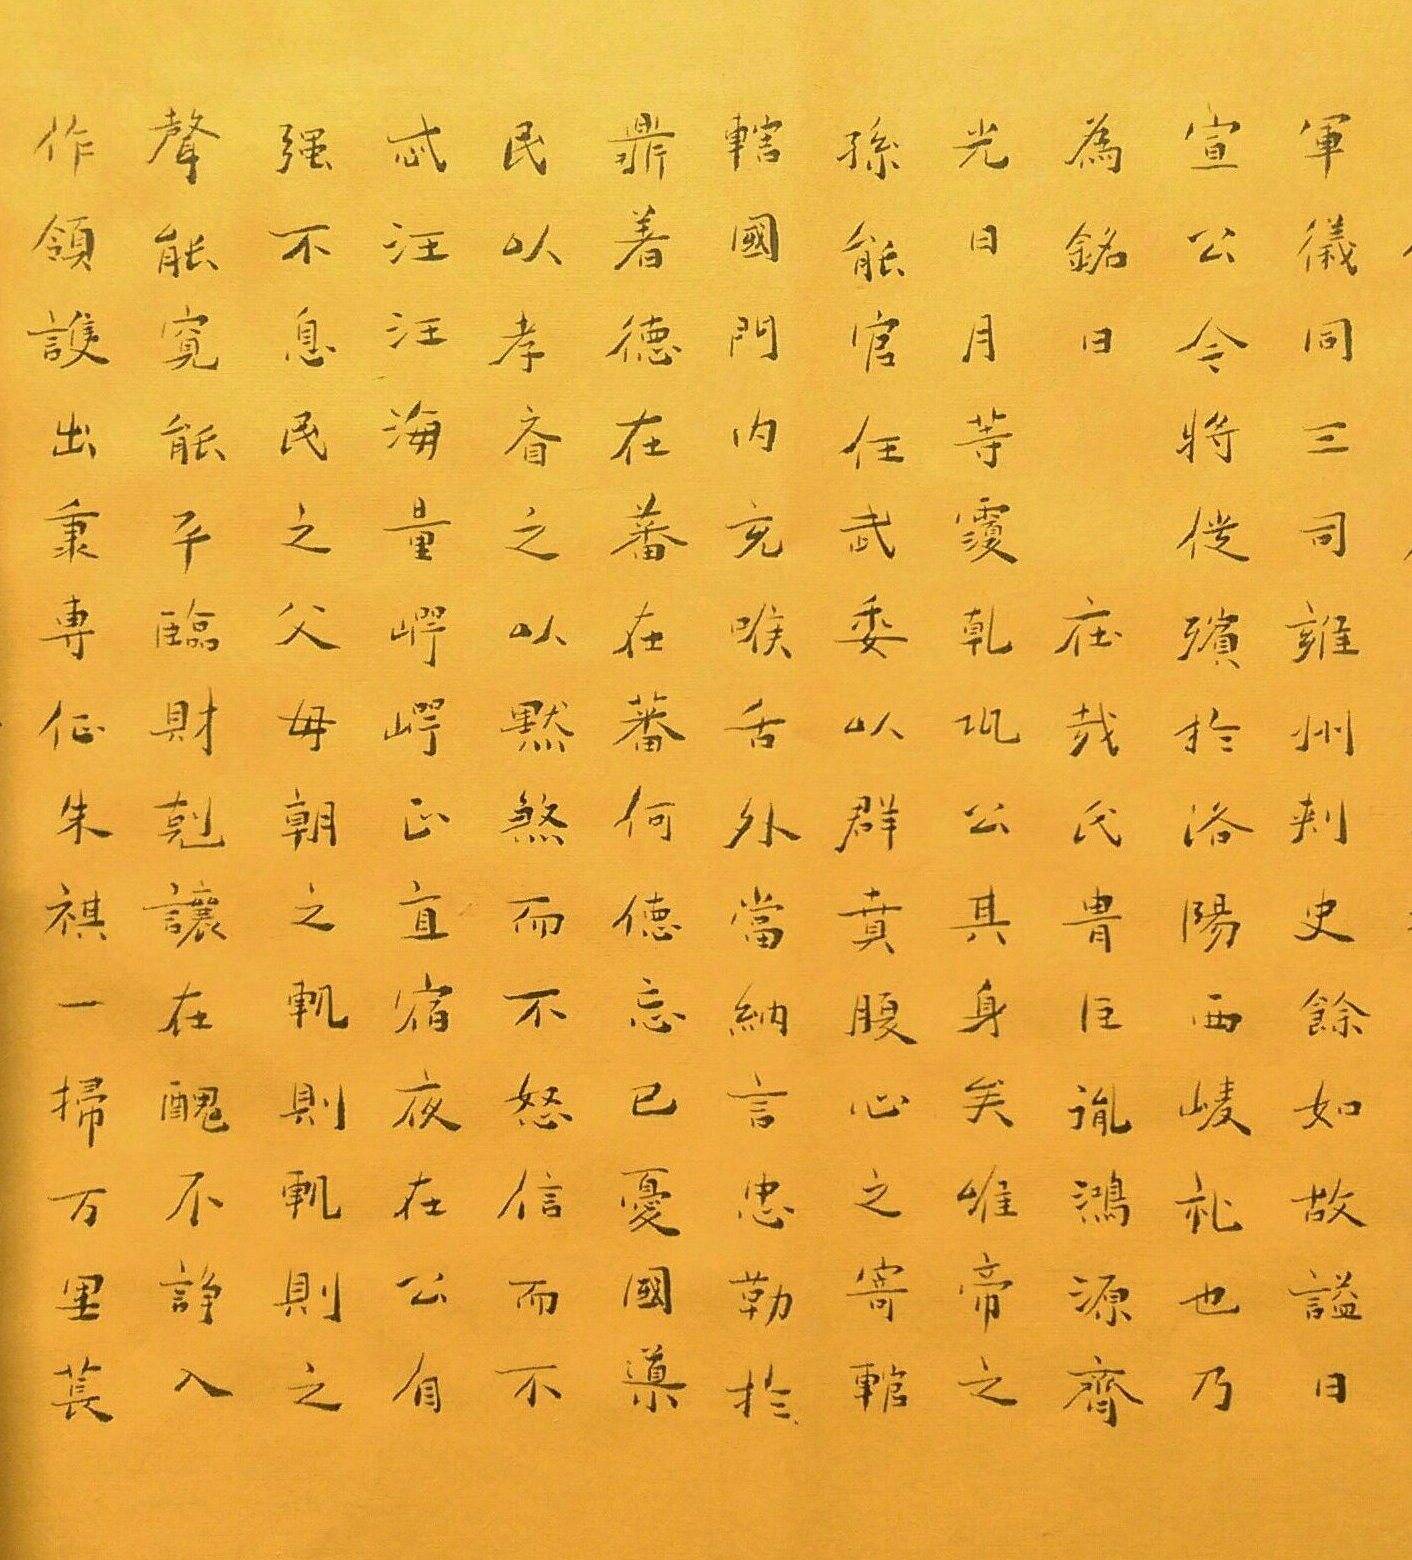 軍儀同三司雍州刾史餘如故謚曰
宣公令將徙殯於洛陽西崚礼也乃
為銘曰 在哉氏胄巨胤鴻源齊
光日月等覆乾巩公其身矣唯帝之
孫能官任武委以群賁腹心之寄輨
轄國門内充喉舌外當納言忠勤於
鼎着德在蕃在蕃何德忘己憂國導
民以孝眘之以黙煞而不怒信而不
忒汪汪海量崿崿正直宿夜在公自
强不息民之父母朝之軌則軌則之
聲能寛能平臨財剋讓在醜不諍入
作領護出秉專征朱祺一掃万里